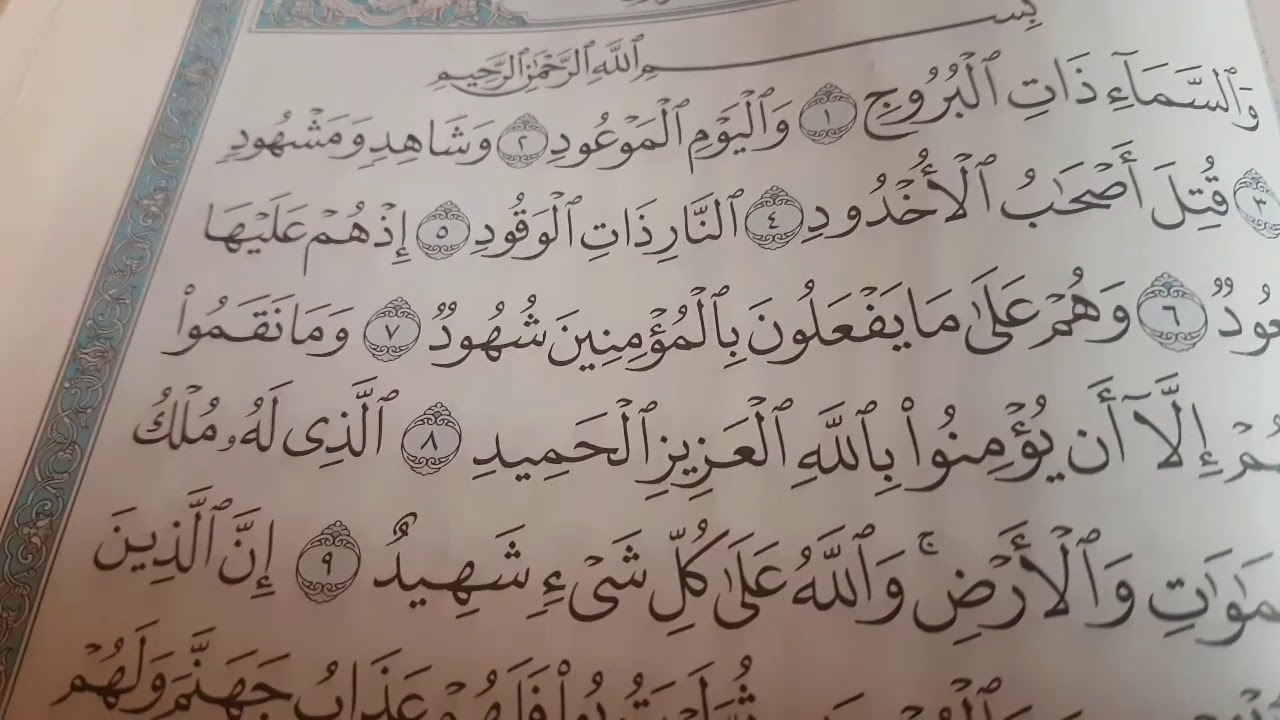 بِسْمِ ٱللَّهِ ٱلرَّحْمَٰنِ ٱلرَّحِيمِ
وَٱلسَّمَآءِ ذَاتِ ٱلْبُرُوجِ ١ وَٱلْيَوْمِ ٱلْمَوْعُودِ ٢ وَشَاهِدٍ وَمَشْهُودٍ
٣ قُتِلَ أَصْحَٰبُ ٱلْأُخْدُودِ ٤ ٱلنَّارِ ذَاتِ ٱلْوَقُودِ ٥ إِذْ هُمْ عَلَيْهَا
عُودٌ ٦ وَهُمْ عَلَىٰ مَا يَفْعَلُونَ بِٱلْمُؤْمِنِينَ شُهُودٌ ٧ وَمَا نَقَمُوا۟
هُمْ إِلَّآ أَن يُؤْمِنُوا۟ بِٱللَّهِ ٱلْعَزِيزِ ٱلْحَمِيدِ ٨ ٱلَّذِى لَهُۥ مُلْكُ
مَٰوَٰتِ وَٱلْأَرْضِ ۚ وَٱللَّهُ عَلَىٰ كُلِّ شَىْءٍ شَهِيدٌ ٩ إِنَّ ٱلَّذِينَ
فَلَهُمْ عَذَابُ جَهَنَّمَ وَلَهُمْ